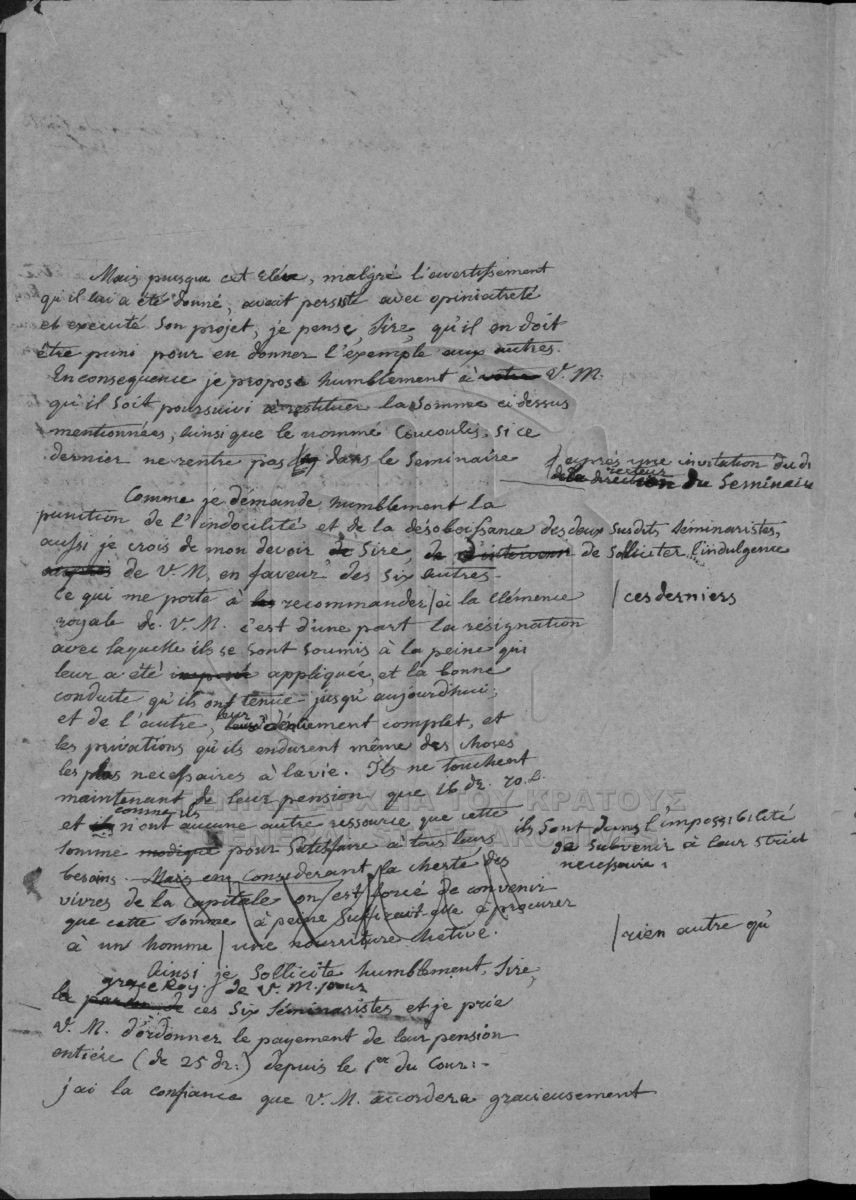 Mais puisque cet élève, malgré l'avertissement
qu'il lui a été donné, avait persisté avec opiniatreté
et executé son projet, je pense, Sire, qu'il en doit
être puni pour en donner l'exemple aux autres.
En consequence je propose humblement à votre V. M.
qu'il soit poursuivi à restituer la somme ci dessus
mentionnées, ainsi que le nommé Coucoulis, si ce
dernier ne rentre pas dans le Seminaire
/ après une invitation du di
recteur
de la direction du Seminaire
Comme je demande humblement la
punition de l'indocilité et de la désobeissance des deux susdits séminaristes,
aussi je crois de mon devoir de Sire, de d'intervenir de solliciter l'indulgence
auprès de V. M. en faveur des six autres.
Ce qui me porte à les recommander / à la clémence
/ ces derniers
royale de V. M. c'est d'une part la résignation
avec laquelle ils se sont soumis à la peine qui
leur a été imposée appliquée, et la bonne
conduite qu'ils ont tenue jusqu'aujourdhui;
et de l'autre, leur dénuement complet, et
les privations qu'ils endurent même des choses
les plus necessaires à la vie. Ils ne touchent
maintenant de leur pension que 16 dr. 70 l.
comme ils
et ils n'ont aucune autre ressource que cette
somme modique pour satisfaire à tous leurs
ils sont dans l'impossibilité
de subvenir à leur strict
necessaire.
besoins. Mais en considerant la cherté des
vivres de la Capitale on est forcé de convenir
que cette somme à peine suffirait elle à procurer
à un homme / une nourriture chetive.
/ rien autre qu'
Ainsi je sollicite humblement, Sire,
grace Roy. de V. M. pour
la pardon de ces six séminaristes et je prie
V. M. d'ordonner le payement de leur pension
entière (de 25 dr.) depuis le 1er du Cour:-
j'ai la confiance que V. M. accordera gracieusement
ΓΕΝΙΚΑ ΑΡΧΕΙΑ ΤΟΥ ΚΡΑΤΟΥΣ